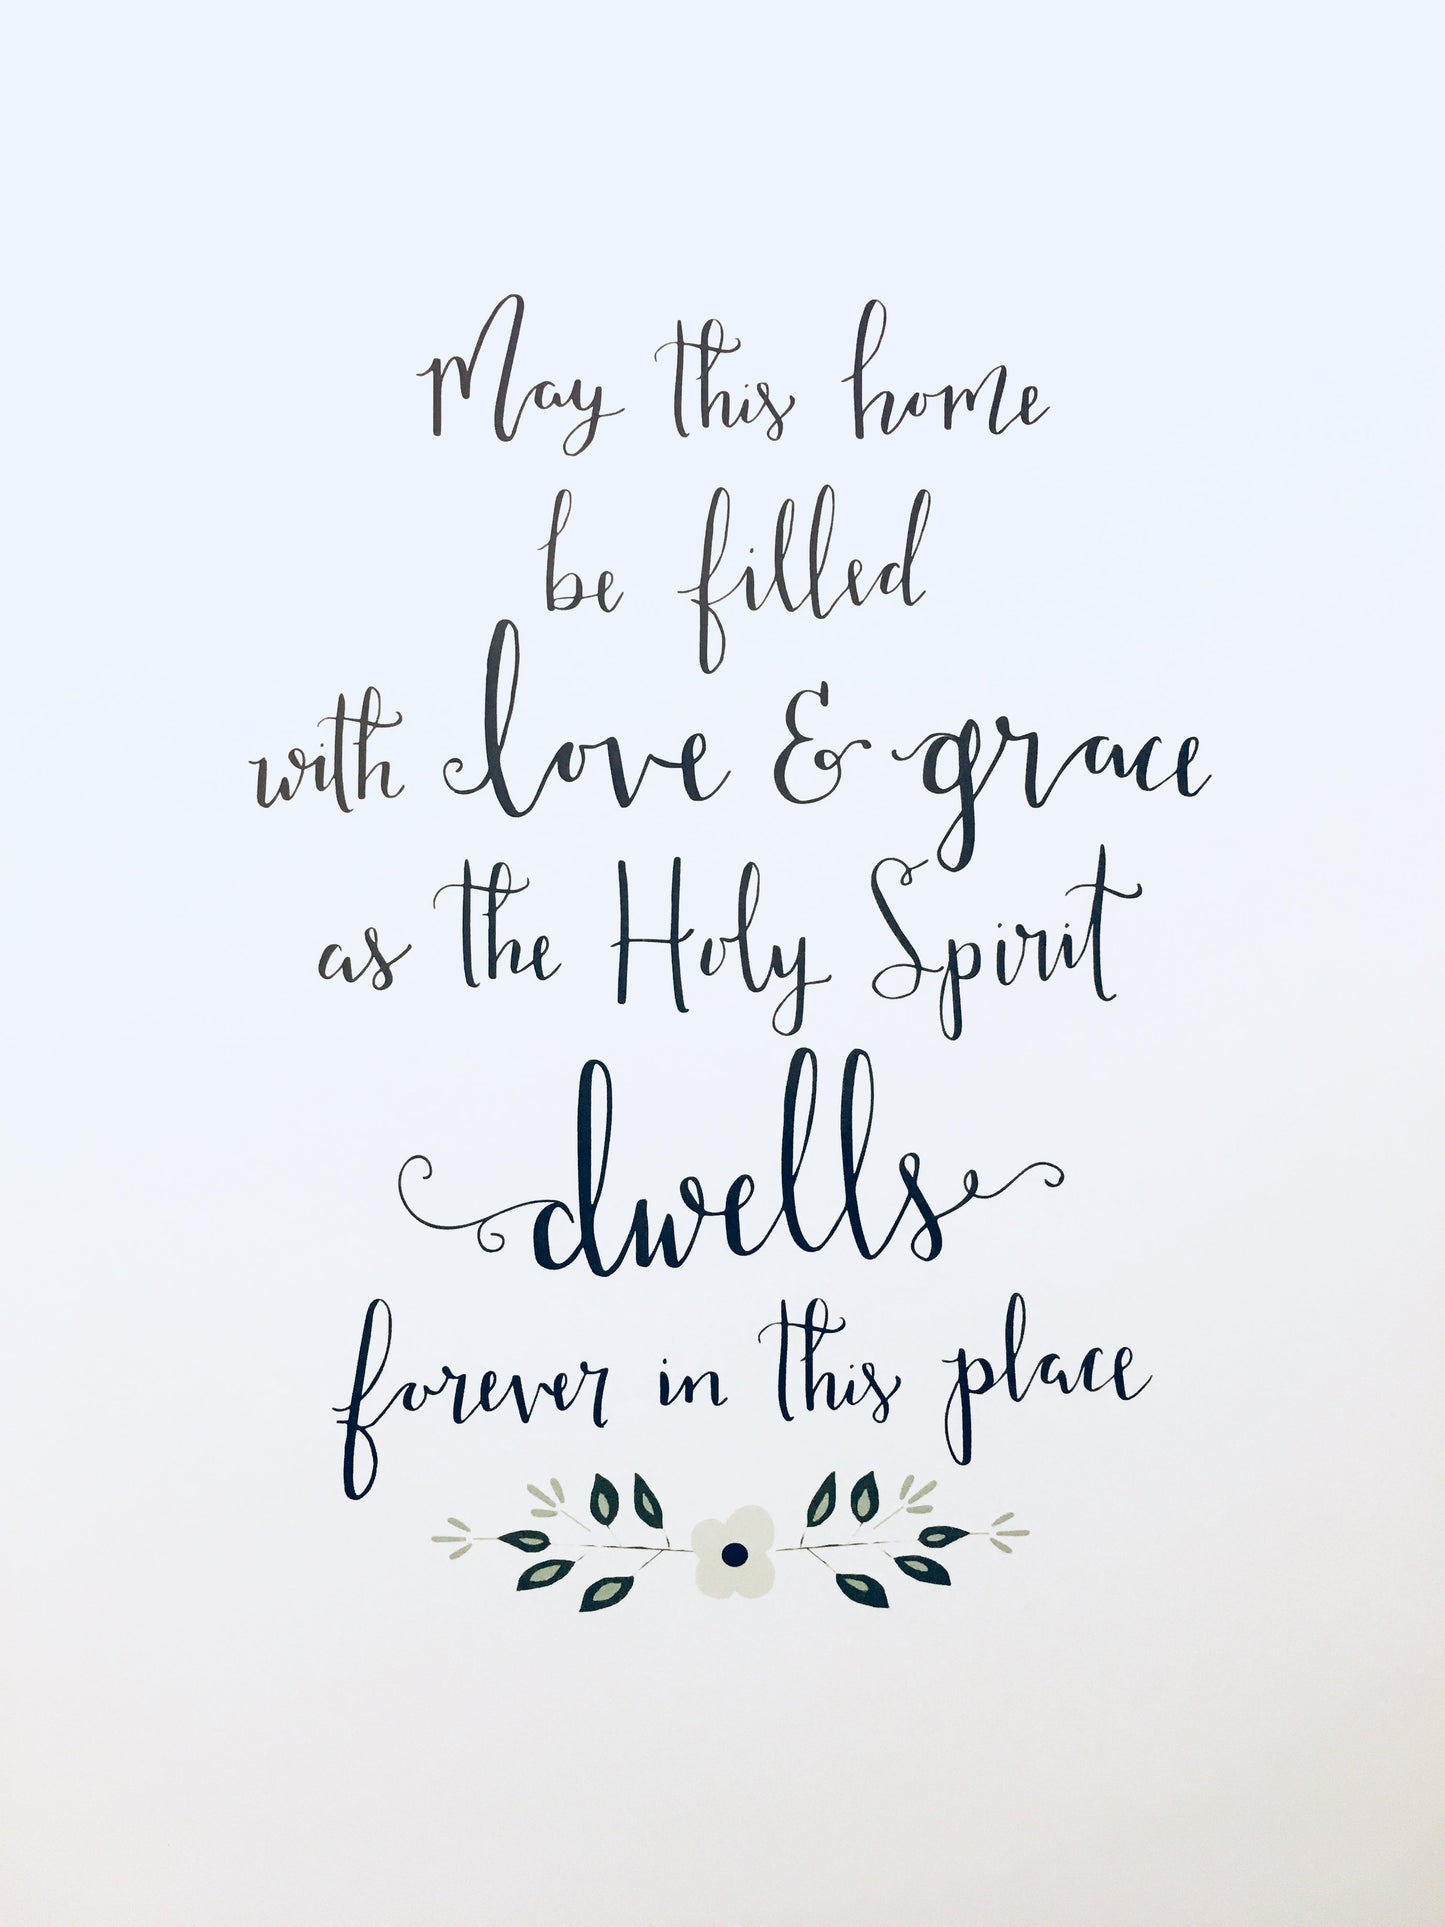 May this home
be filled
with love & grace
as the Holy Spirit
dwells
forever in this place